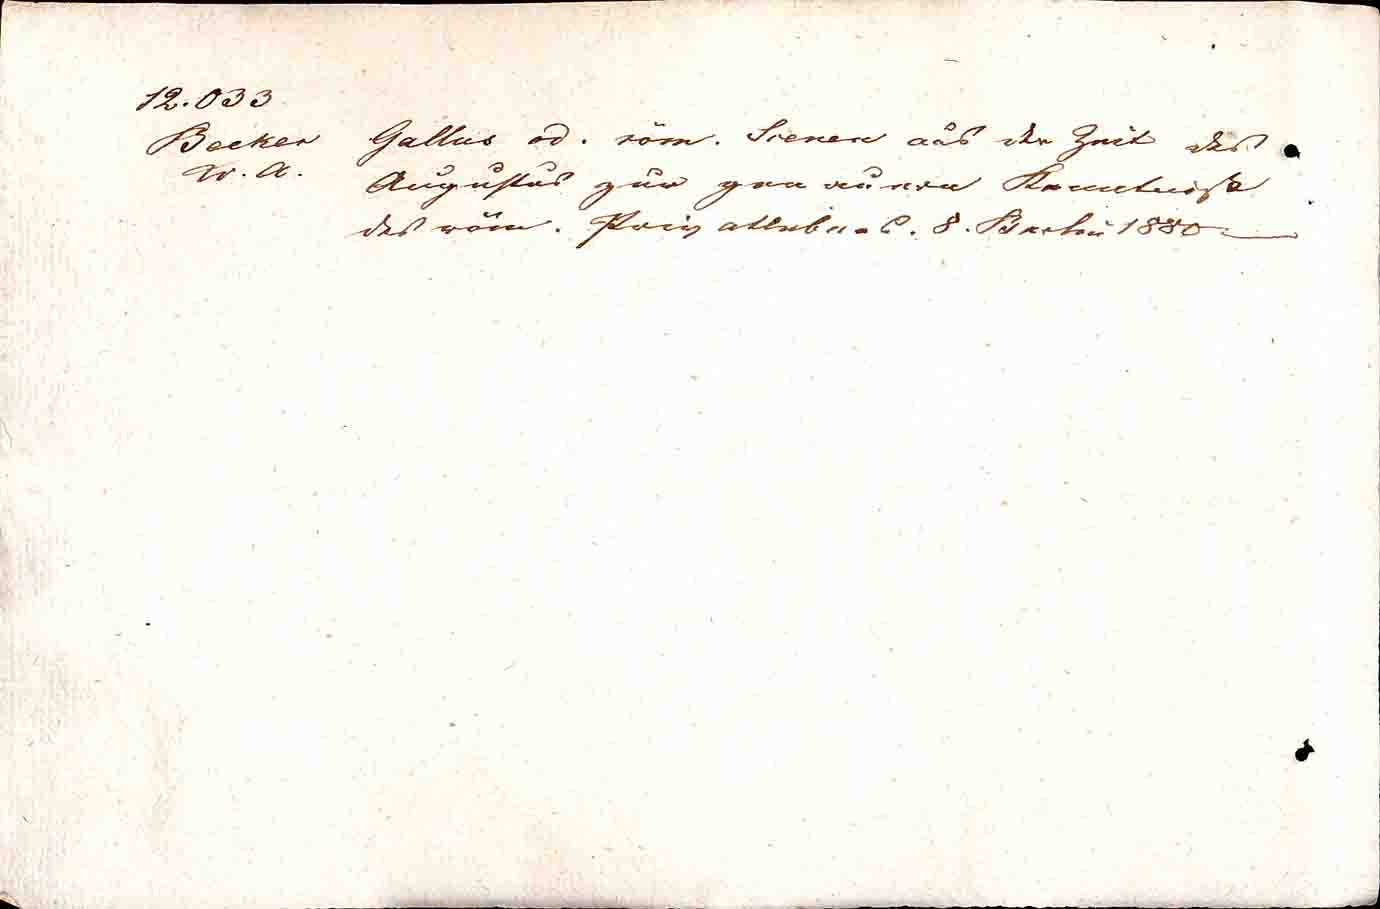 12.033
Becker Gallus od. röm. Scenen aus der Zeit des
W. A. Augustus zur genaueren Kenntniß
des röm. Privatlebens. 8. Berlin 1880